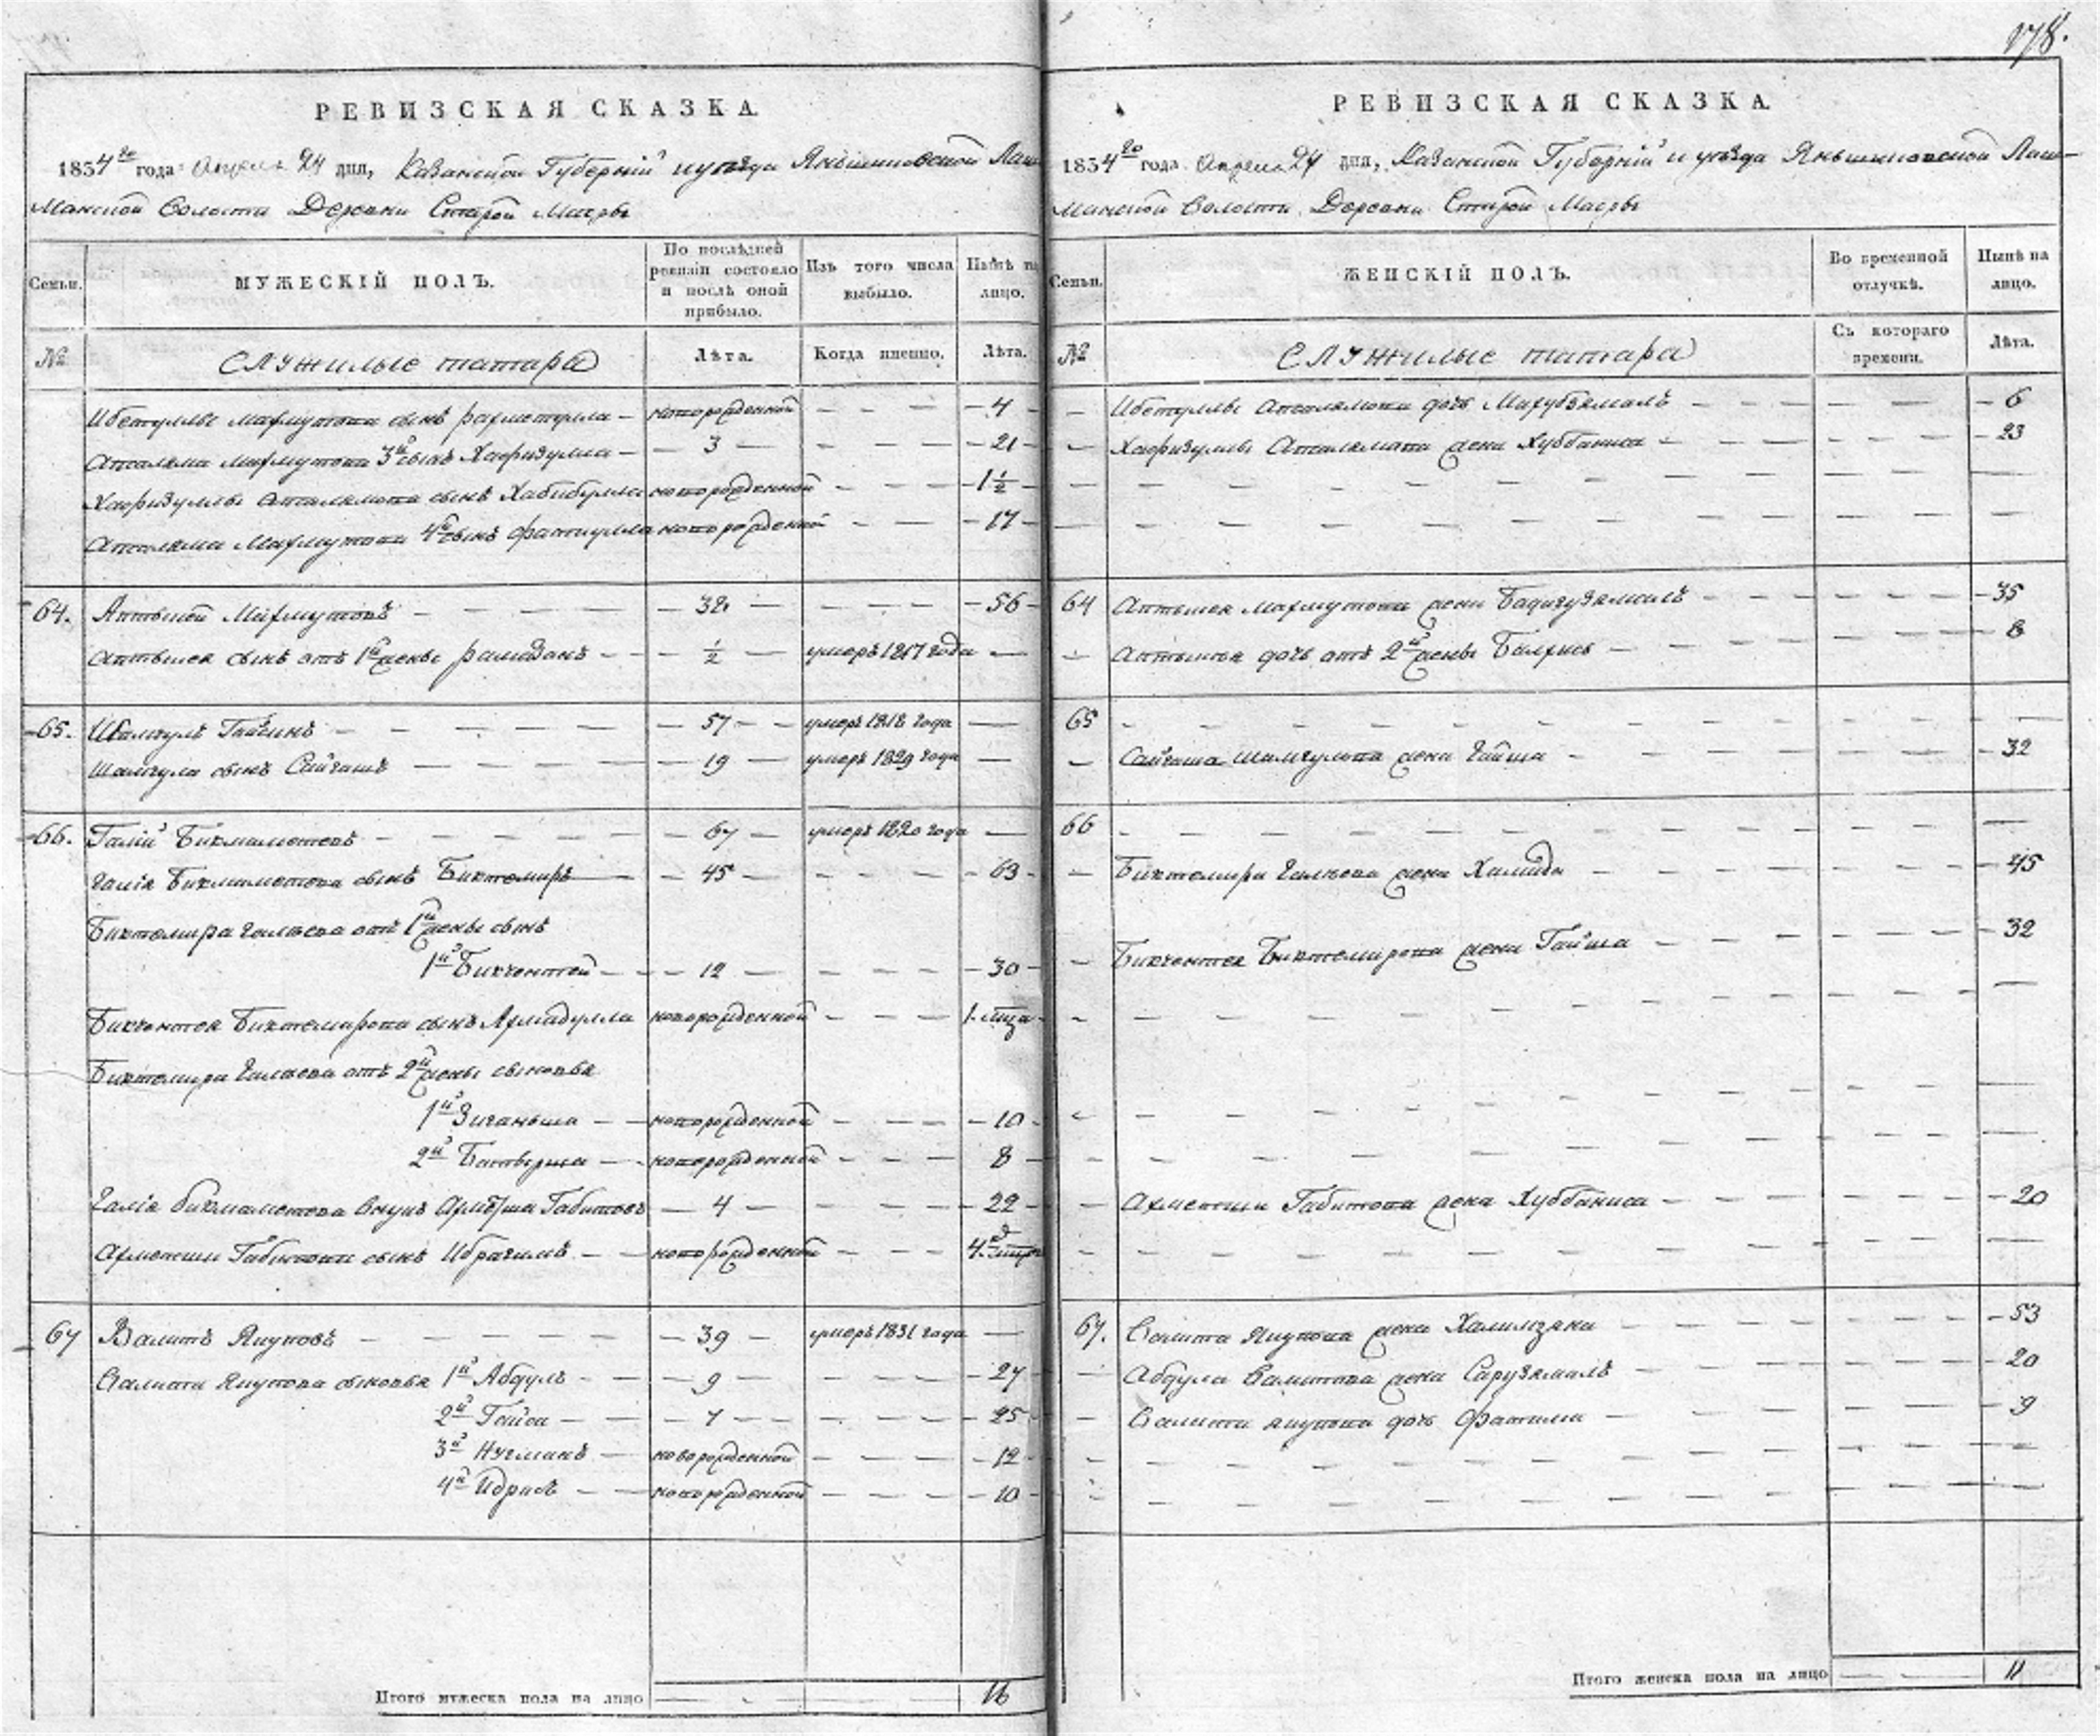 178.
РЕВИЗСКАЯ СКАЗКА.
1834го года Апреля 24 дня, Казанской Губерніи и уезда Янышшовской Лаш
манской Волости Деревни Старой Масры
Семьи.
МУЖЕСКІЙ ПОЛЪ.
По послѣдней ревизіи состояло и послѣ оной прибыло.
Изъ того числа выбыло.
Нынѣ на лицо.
№
Служилые татара
Лѣта.
Когда именно.
Лѣта.
Ибетуллы Махмутова сынъ Рахметулла — новорожденной — — — 4
Апсаляма Махмутова 3й сынъ Хафизулла — 3 — — — 21
Хафизуллы Апсалямова сынъ Хабибулла новорожденной — — — 1½
Апсаляма Махмутова 4й сынъ Фатхулла новорожденой — — 17
64. Аптыкей Махмутовъ — — — 32 — — — 56
Аптыкея сынъ отъ 1й жены Рамаданъ — ½ — умеръ 1817 года —
65. Шамгулъ — — — 57 — умеръ 1818 года —
Шамгула сынъ Сайгашъ — — — 19 — умеръ 1829 года —
66. Галій Бикмаметевъ — — — 67 — умеръ 1820 года —
Галія Бикмаметева сынъ Биктемиръ — 45 — — — 63
Биктемира Галиева отъ 1й жены сынъ
1й Бикчентей — — 12 — — — 30
Бикчентея Биктемирова сынъ Ахмадулла новорожденной — — — 1.
Биктемира Галиева отъ 2й жены сыновья
1й Зиганьша — — новорожденной — — — 10
2й Батырша — — новорожденной — — — 8
Галія Бикмаметева внукъ Ахметша Габитовъ — 4 — — — 22
Ахметши Габитова сынъ Ибрагимъ — — новорожденной — — — 4.
67 Валитъ Якуповъ — — — 39 — умеръ 1831 года —
Валита Якупова сыновья 1й Абдулъ — — 9 — — — 27
2й Гайса — — 7 — — — 25
3й Нугманъ — новорожденной — — — 12
4й Идрисъ — — новорожденной — — — 10
Итого мужеска пола на лицо — — — 16
РЕВИЗСКАЯ СКАЗКА.
1834го года Апреля 24 дня, Казанской Губерніи и уезда Янышшовской Лаш-
манской Волости Деревни Старой Масры
Семьи.
ЖЕНСКІЙ ПОЛЪ.
Во временной отлучкѣ.
Нынѣ на лицо.
№
Служилые татара
Съ котораго времени.
Лѣта.
— Ибетуллы Апсалямова дочь Махубзямалъ — — — 6
— Хафизуллы Апсалямова жена Хуббаниса — — — 23
64 Аптыкея Махмутова жена Бадигузямалъ — — — 35
— Аптыкея дочь отъ 2й жены Балхись — — — 8
65 — — —
— Сайгаша Шамгулова жена Гайша — — — 32
66 — — —
— Биктемира Галиева жена Хамида — — — 45
— Бикчентея Биктемирова жена Гайша — — — 32
— Ахметши Габитова жена Хуббаниса — — — 20
67. Валита Якупова жена Халимзяна — — — 53
— Абдула Валитова жена Сарузямалъ — — — 20
— Валита Якупова дочь Фатима — — — 9
Итого женска пола на лицо — — 11